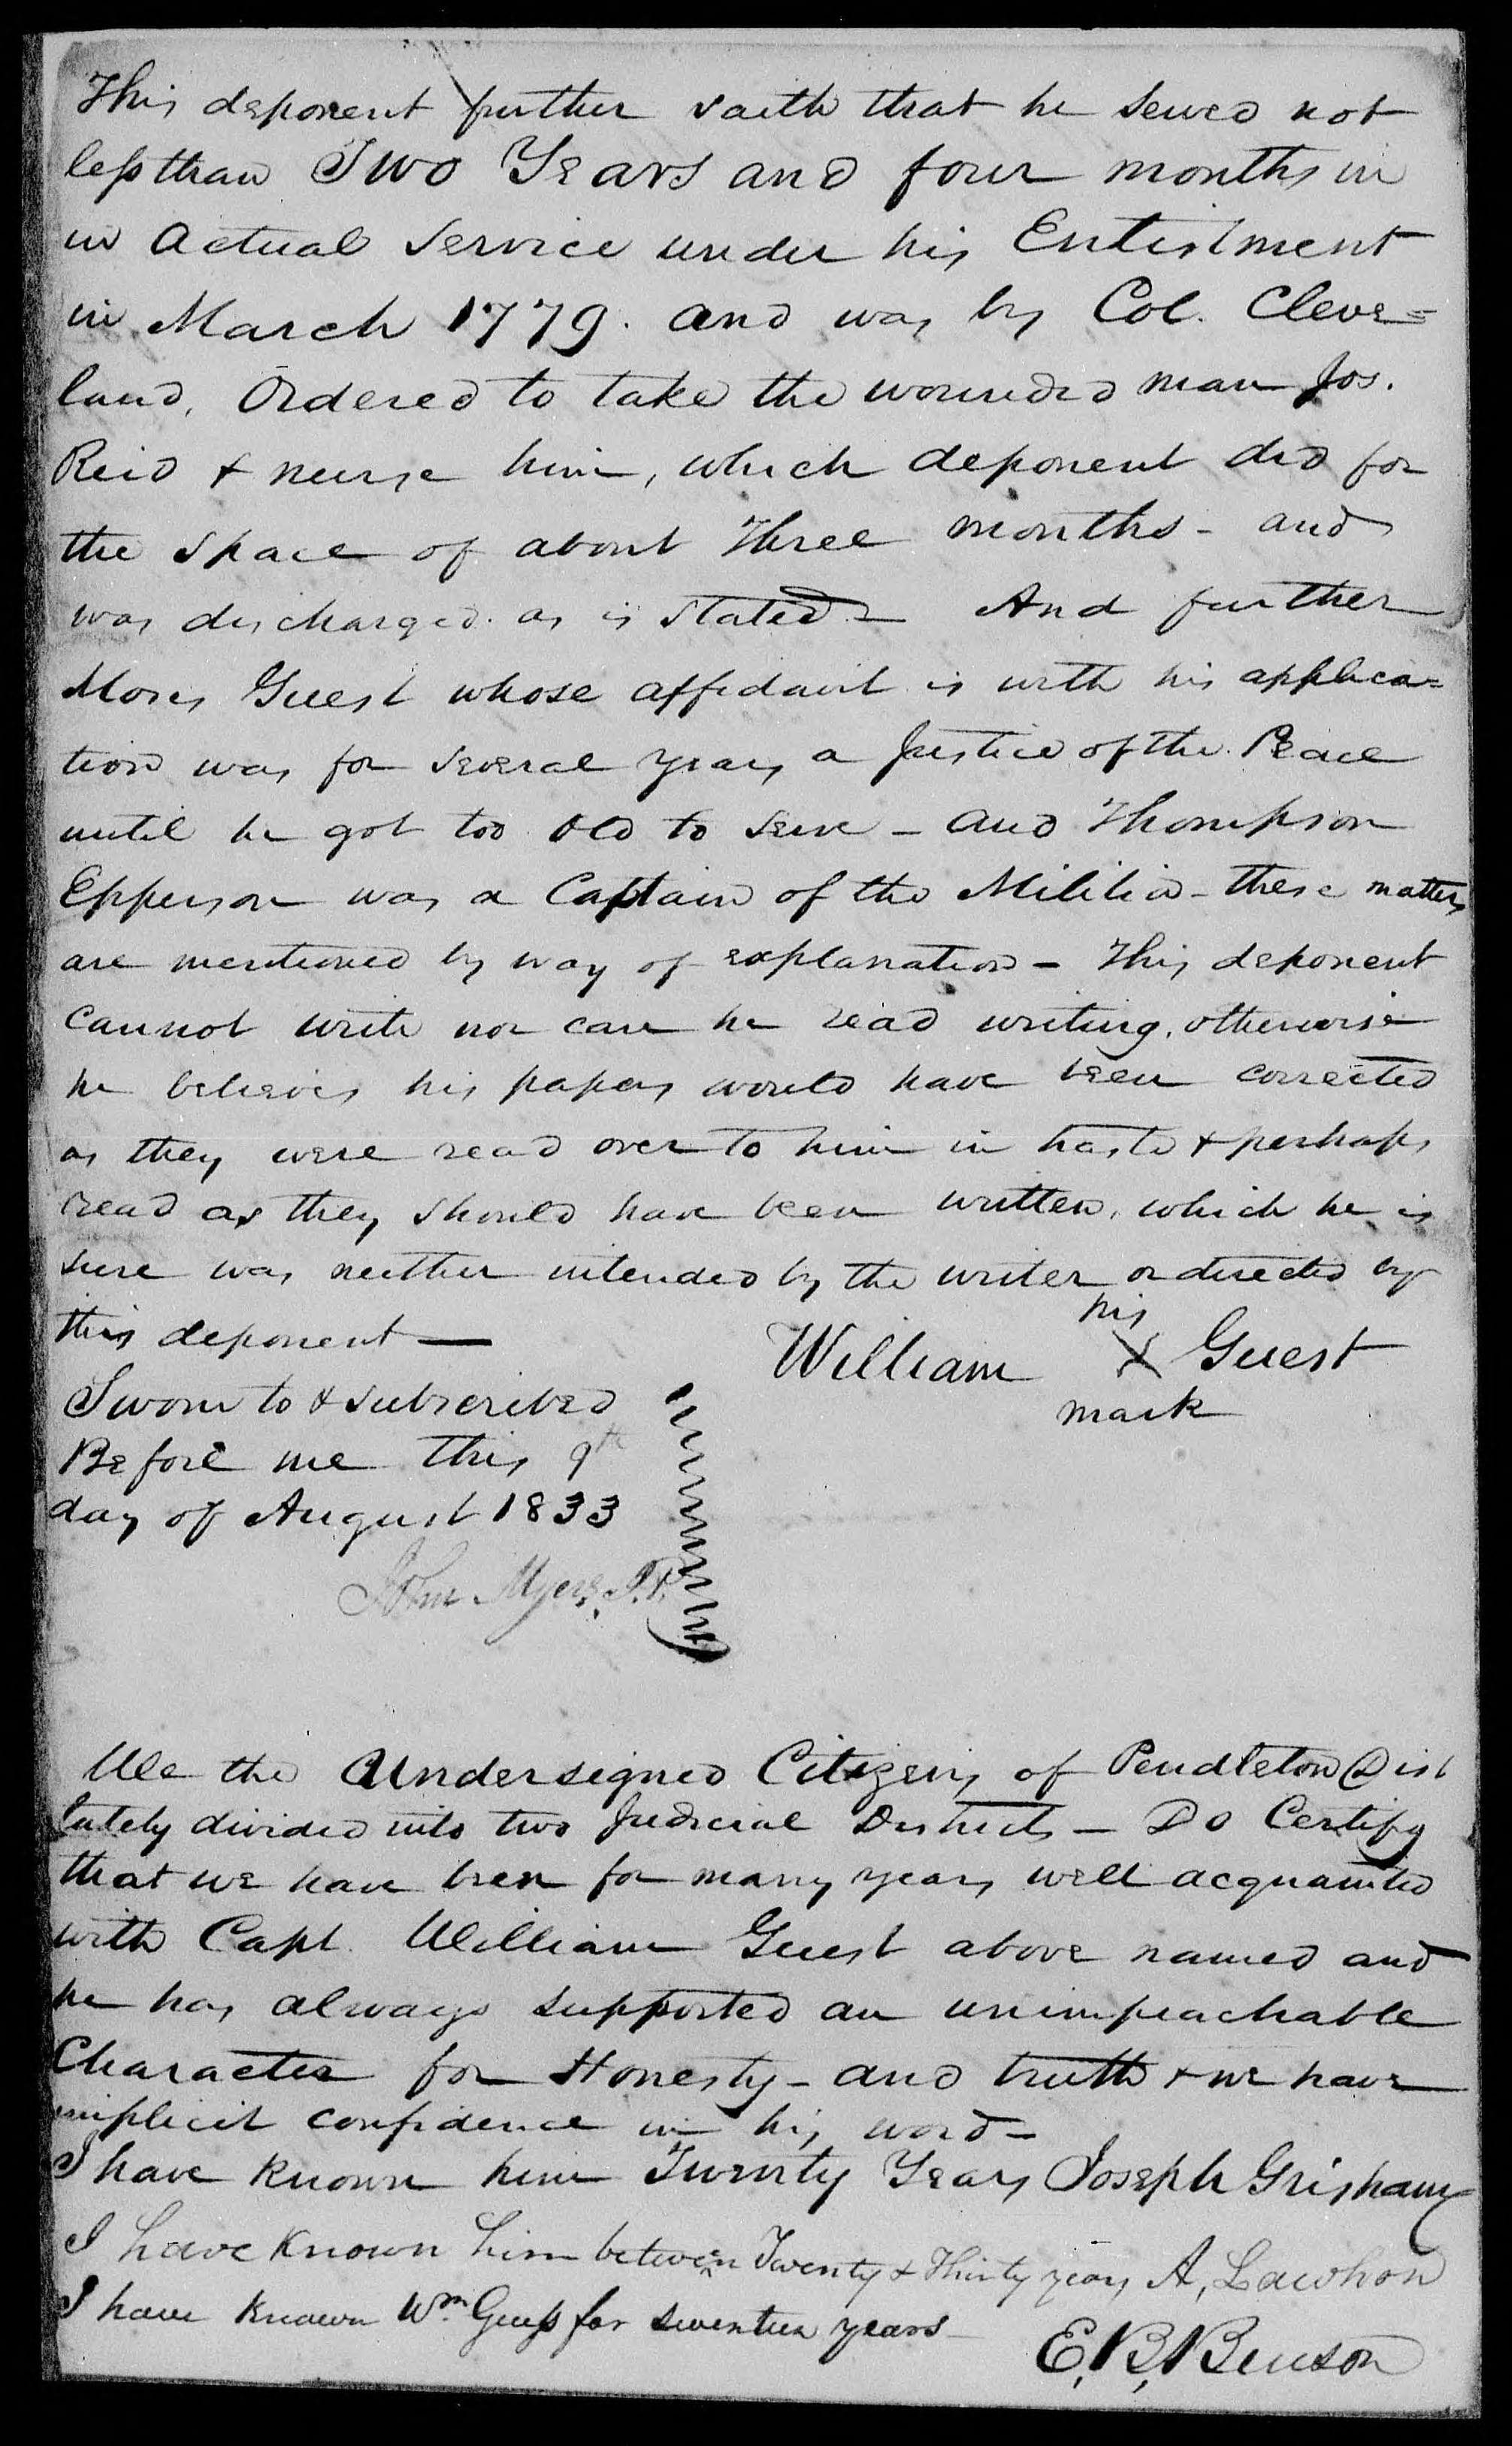 This deponent further saith that he served not
less than Two Years and four months in
in actual service under his Entistment
in March 1779. and was by Col. Cleve=
land, Ordered to take the wounded man Jos.
Reid & nurse him, which deponent did for
the space of about Three months - and
was discharged. as is stated - And further
Moses Guest whose affidavit is with his applica=
tion was for several years a Justice of the Peace
until he got too old to serve - and Thompson
Epperson was a Captain of the Militia - these matters
are mentioned by way of explanation - This deponent
cannot write nor can he read writing, otherwise
he believes his papers would have been corrected
as they were read over to him in haste & perhaps
read as they should have been written, which he is
sure was neither intended by the writer or directed by
this deponent —
his
William X Guest
mark
Sworn to & subscribed
Before me this 9th
day of August 1833
John Myers J.P.
We the Undersigned Citizens of Pendleton Dist
lately divided into two Judicial Districts - Do Certify
that we have been for many years well acquainted
with Capt. William Guest above named and
he has always supported an unimpeachable
Character for Honesty - and truth & we have
implicit confidence in his word -
I have known him Twenty Years Joseph Grisham
I have known him between Twenty & Thirty years A, Lawhon
I have known Wm Guess for seventeen years -
E, B, Benson